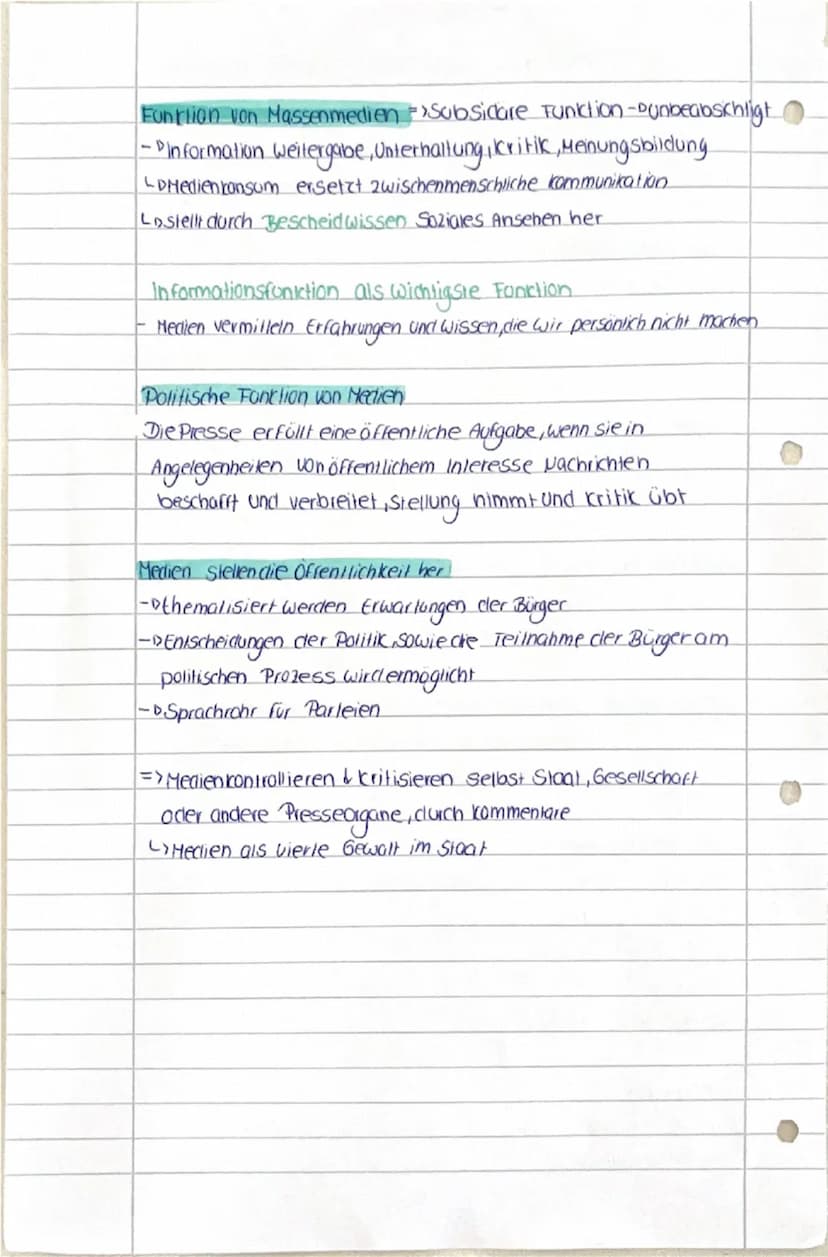 Funktion von Massenmedien => Subsidäre Funktion -> unbeabsichtigt
-> Information Weitergabe, Unterhaltung, Kritik, Meinungsbildung
↳ Medienkonsum ersetzt zwischenmenschliche Kommunikation
↳ stellt durch Bescheidwissen Soziales Ansehen her
Informationsfunktion als wichtigste Funktion
- Medien vermitteln Erfahrungen und Wissen, die wir persönlich nicht machen
Politische Funktion von Medien
Die Presse erfüllt eine öffentliche Aufgabe, wenn sie in
Angelegenheiten von öffentlichem Interesse Nachrichten
beschafft und verbreitet, Stellung nimmt und Kritik übt
Medien stellen die Öffentlichkeit her
-> thematisiert werden Erwartungen der Bürger
-> Entscheidungen der Politik, sowie die Teilnahme der Bürger am
politischen Prozess wird ermöglicht
-> Sprachrohr für Parteien
=> Medien kontrollieren & kritisieren selbst Staat, Gesellschaft
oder andere Presseorgane, durch Kommentare
↳ Medien als vierte Gewalt im Staat